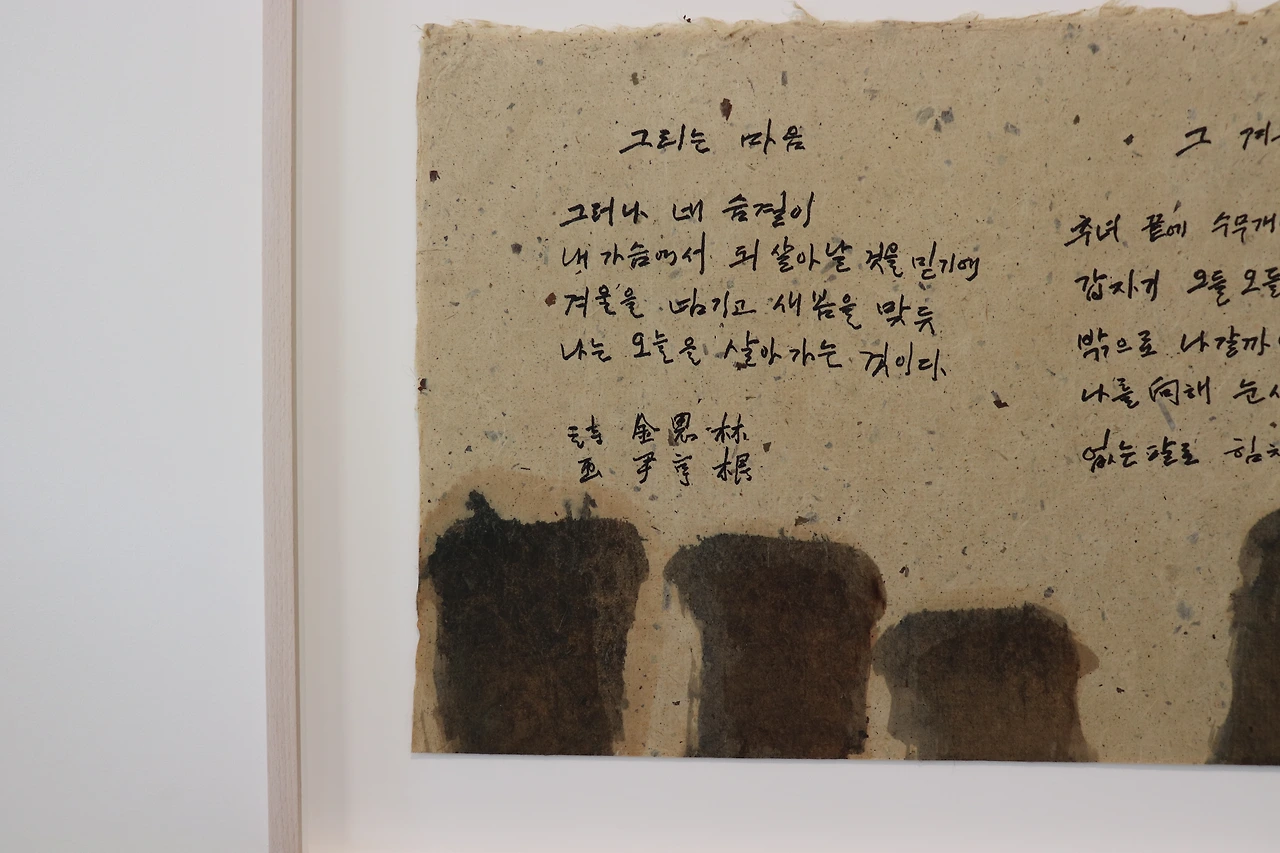 그리는 마음
그러나 네 숨결이
내 가슴에서 되살아날 것을 믿기에
겨울을 넘기고 새 봄을 맞듯
나는 오늘을 살아가는 것이다.
詩 金思林
画 尹亨根
그 겨
추녀 끝에 수무개
갑자기 오들오들
밖으로 나갈까
나를 向해 눈
없는 팔로 힘